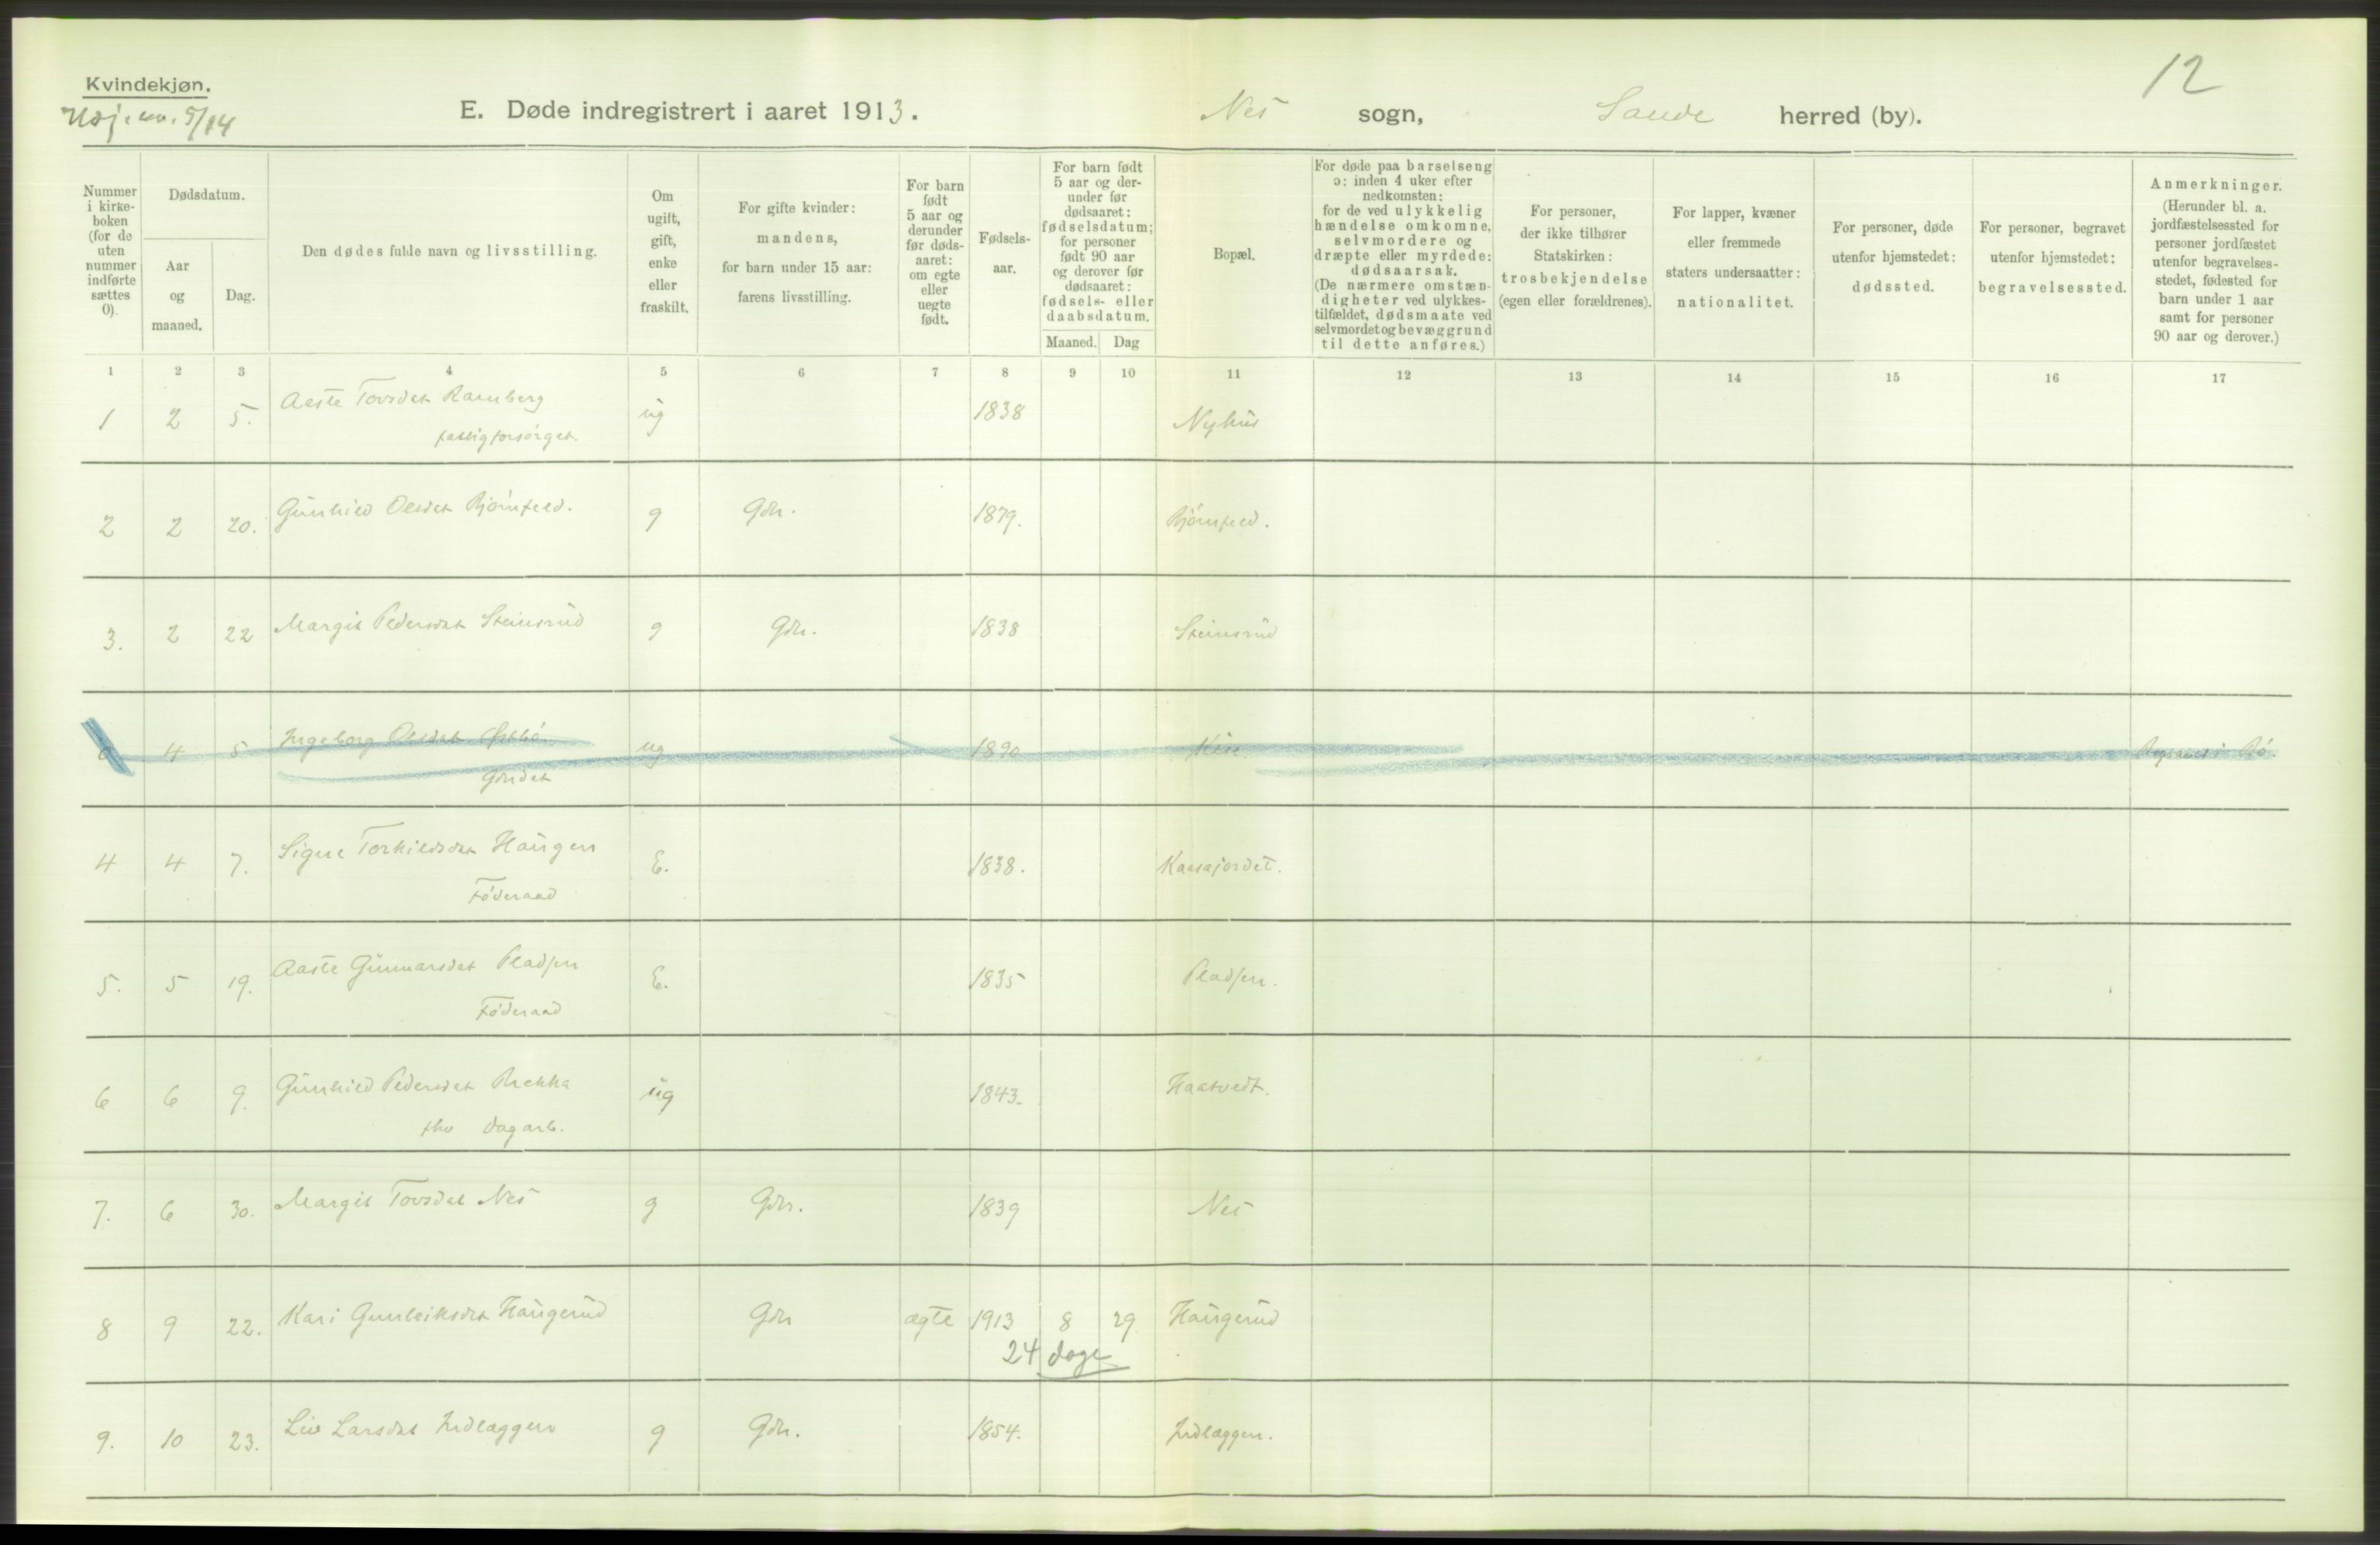 Kvindekjøn.
5/14
12
E. Døde indregistrert i aaret 1913.
Nes sogn, Saude herred (by).
Nummer i kirke-boken (for de uten nummer indførte sættes 0).
Dødsdatum.
Aar og maaned.
Dag.
Den dødes fulde navn og livsstilling.
Om ugift, gift, enke eller fraskilt.
For gifte kvinder: mandens, for barn under 15 aar: farens livsstilling.
For barn født 5 aar og derunder før døds-aaret: om egte eller uegte født.
Fødsels-aar.
For barn født 5 aar og der-under før dødsaaret: fødselsdatum; for personer født 90 aar og derover før dødsaaret: fødsels- eller daabsdatum.
Maaned.
Dag
Bopæl.
For døde paa barselseng ɔ: inden 4 uker efter nedkomsten: for de ved ulykkelig hændelse omkomne, selvmordere og dræpte eller myrdede: dødsaarsak. (De nærmere omstæn-digheter ved ulykkes-tilfældet, dødsmaate ved selvmordet og bevæggrund til dette anføres.)
For personer, der ikke tilhører Statskirken: trosbekjendelse (egen eller forældrenes).
For lapper, kvæner eller fremmede staters undersaatter: nationalitet.
For personer, døde utenfor hjemstedet: dødssted.
For personer, begravet utenfor hjemstedet: begravelsessted.
Anmerkninger. (Herunder bl. a. jordfæstelsessted for personer jordfæstet utenfor begravelses-stedet, fødested for barn under 1 aar samt for personer 90 aar og derover.)
1 2 3 4 5 6 7 8 9 10 11 12 13 14 15 16 17
1 2 5. Aaste Tovsdat Ramberg ug 1838 Nyhus
fattigforsørget.
2 2 20. Gunhild Olsdat Bjørnfeld. g Gdr. 1879. Bjørnfeld.
3. 2 22 Margit Pedersdat Steinsrud g Gdr. 1838 Steinsrud
0 4 5 Ingeborg Olsdat ug 1890
Gdrdat
4 4 7. Signe Torkildsdat Haugen E. 1838. Kaasajordet.
Føderaad
5. 5 19. Aaste Gunnarsdat Pladsen E. 1835 Pladsen.
Føderaad
6 6 9. Gunhild Pedersdat Brekka ug 1843. Haatvedt.
fhv dagarb.
7. 6 30. Margit Tovsdat Nes g Gdr. 1839 Nes
8 9 22. Kari Gunleiksdat Haugerud Gdr ægte 1913 8 29 Haugerud
24 dage
9. 10 23. Liv Larsdat Indlæggen g Gdr. 1854. Indlæggen.